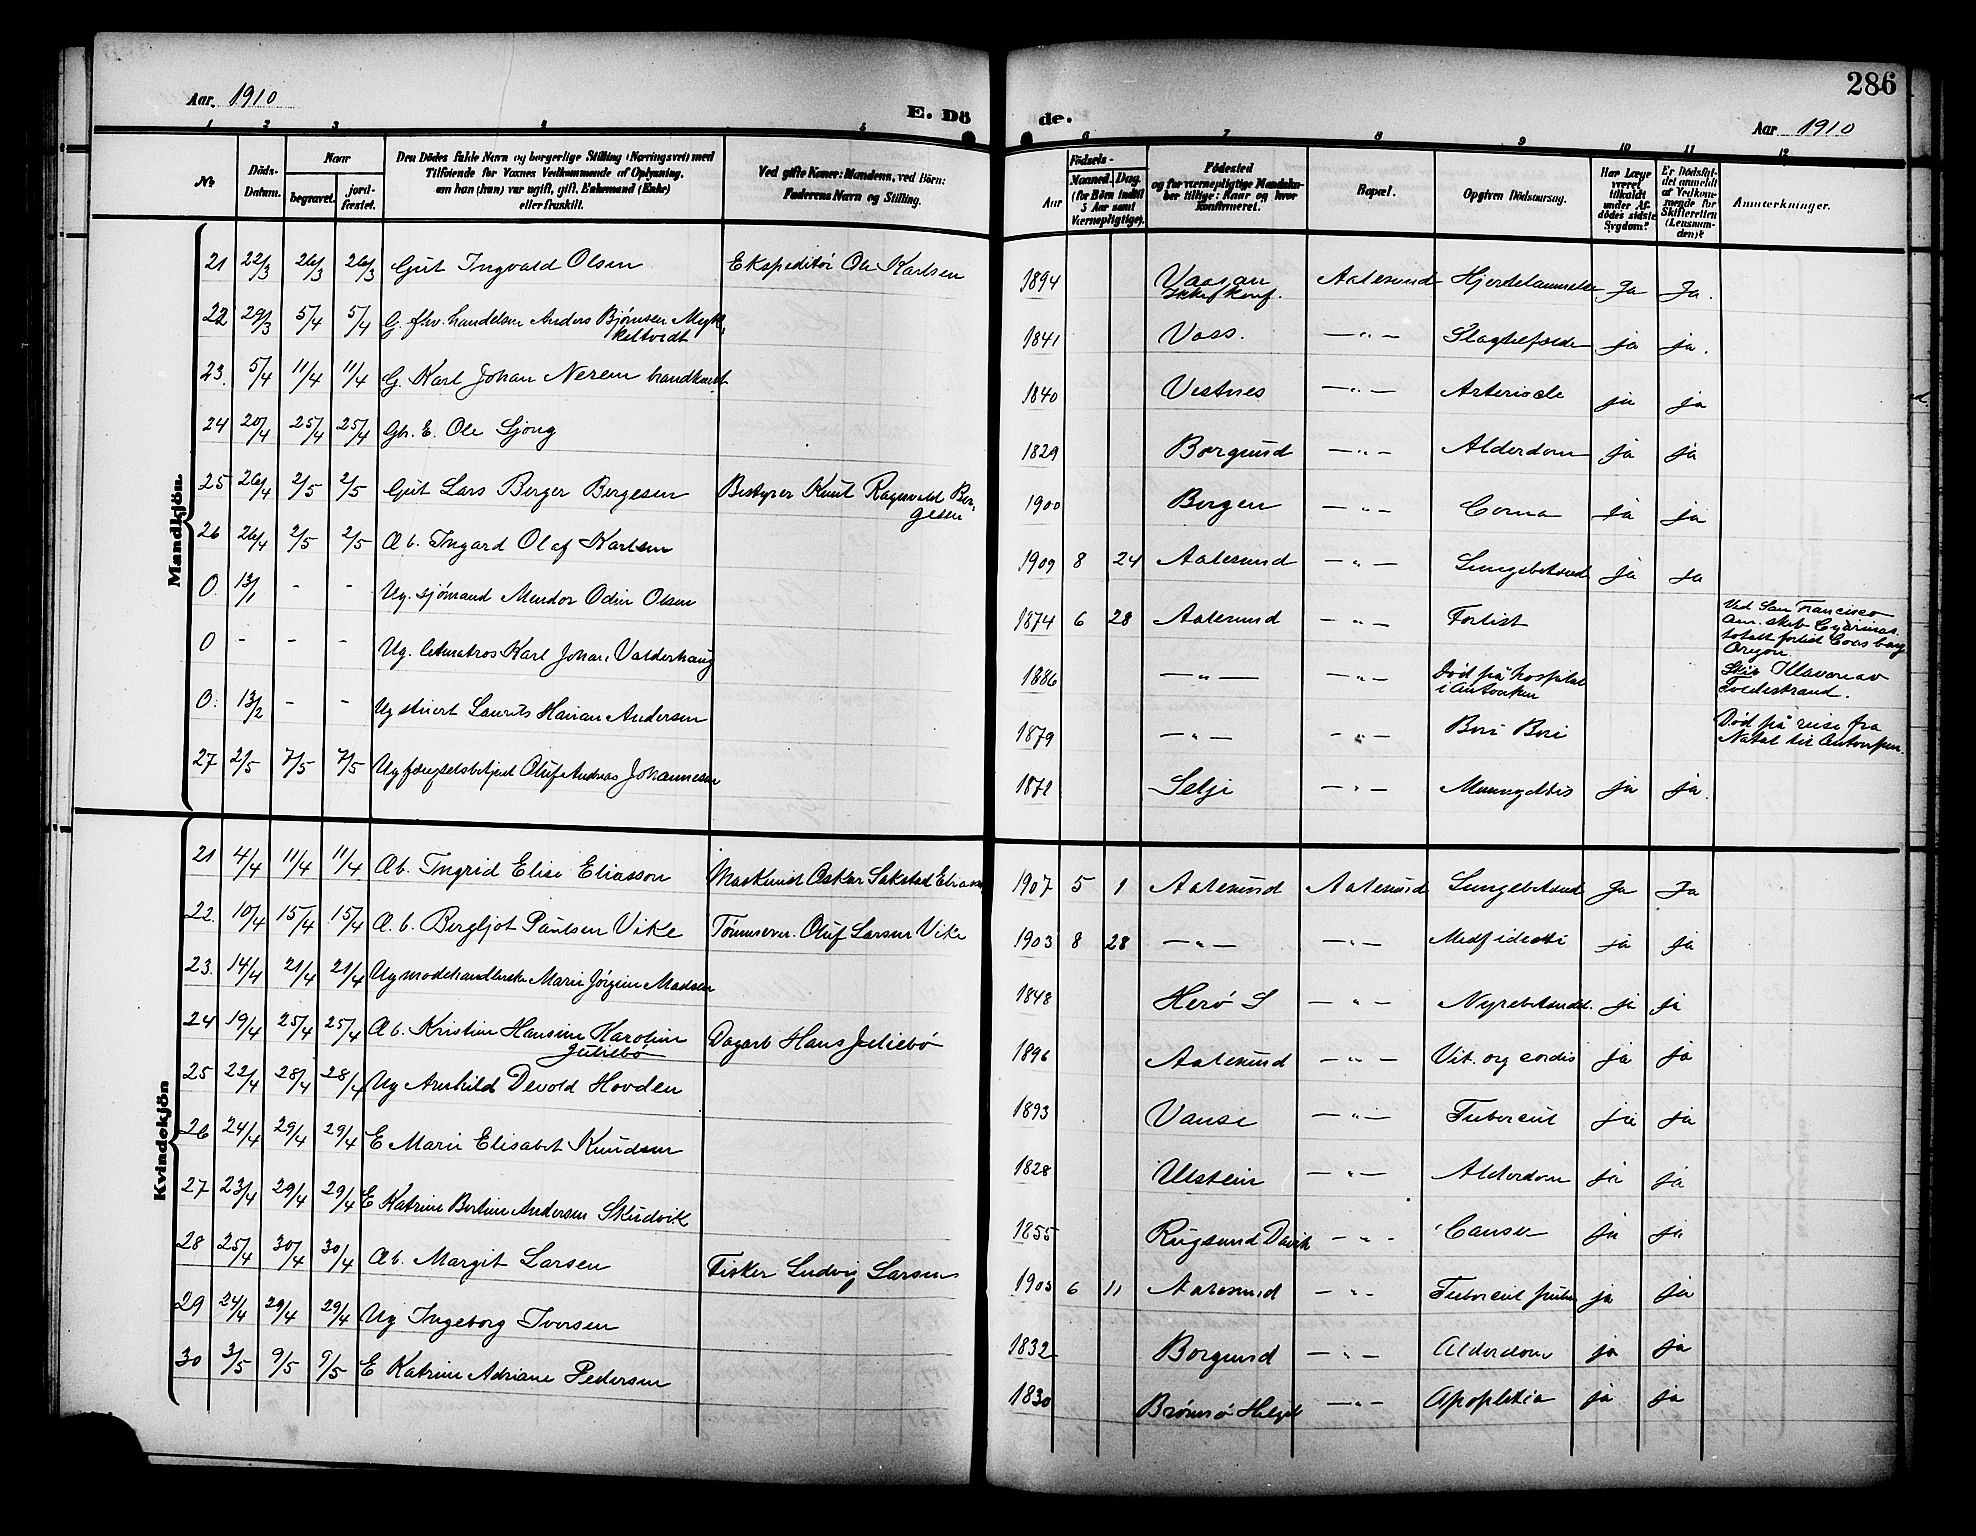 286
Aar 1910
E. Dö
de.
Aar 1910
1 2 3 4 5
6 7 8 9 10 11 12
No
Döds-Datum.
Naar
begravet.
jord-fæstet.
Den Dödes fulde Navn og borgerlige Stilling (Næringsvei) med
Tilföiende for Voxnes Vedkommende af Oplysning,
om han (hun) var ugift, gift, Enkemand (Enke)
eller fraskilt.
Ved gifte Koner: Mandens, ved Börn:
Faderens Navn og Stilling.
Födsels-
Aar
Maaned. Dag.
(for Börn indtil
5 Aar samt
Værnepligtige).
Födested
og for værnepligtige Mandskaber tillige: Naar og hvor konfirmeret.
Bopæl.
Opgiven Dödsaarsag.
Har Læge været tilkaldt under Afdödes sidste Sygdom?
Er Dödsfaldet anmeldt af Vedkommende for Skifteretten (Lensmanden)?
Anmærkninger.
Mandkjön.
21 22/3 26/3 26/3 Gut Ingvald Olsen Ekspeditör Ole Karlsen 1894 Aalesund Ja Ja.
22 29/3 5/4 5/4 G. fhv. handelsm Anders Bjørnsen 1841 Voss. —"— ja ja.
23. 5/4 11/4 11/4 G. Karl Johan Nerem 1840 Vestnes —"— ja ja
24 20/4 25/4 25/4 E. Ole Sjong 1829 Borgund —"— Alderdom ja ja
25 26/4 2/5 2/5 Gut Lars Berger Bergesen Bestyrer Knut Ragnvald Bergesen 1900 Bergen —"— Coma ja ja
26 26/4 2/5 2/5 Æb. Ingard Olaf Karlsen 1909 8 24 Aalesund —"— Lungebetænd ja ja
0. 13/1 - - Ug. sjømand Mendor Odin Olsen 1874 6 28 Aalesund —"— Forlist Ved San Francisco
totalt forlist Coos bay
Oregon.
0 - - - Ug. letmatros Karl Johan Valderhaug 1886 —"— —"— Død på hospital
i Antverpen
0. 13/2 - - Ug stuert Laurits Andersen 1879 —"— —"— Beri Beri Død på reise fra
Natal til Antverpen.
27 2/5 7/5 7/5 Ug fængselsbetjent Oluf Andreas Johannesen Selje —"— ja ja.
Kvindekjön
21 4/4 11/4 11/4 Æb. Ingrid Elise Eliasson Maskinist Oskar 1907 5 1 Aalesund Aalesund Lungebetænd Ja Ja
22. 10/4 15/4 15/4 Æ. b. Bergljot Paulsen Vike Tømmerm. Oluf Larsen Vike 1903 8 28 —"— —"— ja ja
23. 14/4 21/4 21/4 Ug modehandlerske Marie Jørgine Madsen 1848 Herø S —"— Nyrebetænd. ja ja
24 19/4 25/4 25/4 Æb. Kristine Hansine Karoline
Juliebø Dagarb Hans Juliebø 1896 Aalesund —"— Vit. org cordis ja ja
25 22/4 28/4 28/4 Ug Devold Hovden 1893 Vanse —"— Tubercul ja ja
26 24/4 29/4 29/4 E Marie Elisabet Knudsen 1828 Ulstein —"— Alderdom ja ja
27 23/4 29/4 29/4 E Katrine Bertine Andersen Skudvik 1855 Rugsund Davik —"— Cancer ja ja
28 25/4 30/4 30/4 Æb. Margit Larsen Fisker Ludvig Larsen 6 11 Aalesund —"— Tubercul ja ja
29 24/4 29/4 29/4 Ug Ingeborg Iversen 1832 Borgund —"— Alderdom ja ja
30 3/5 9/5 9/5 E Katrine Adriane Pedersen 1830 Brønnø —"— Apoplexia ja ja